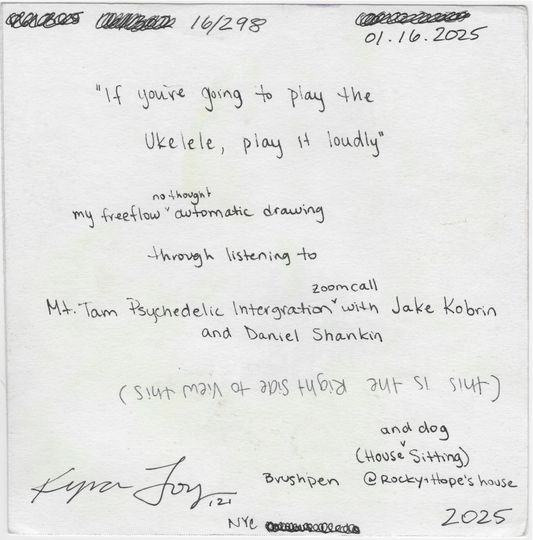 16/298
01.16.2025
"If you're going to play the
Ukelele, play it loudly"
no thought
my freeflow ˅ automatic drawing
through listening to
zoom call
Mt. Tam Psychedelic Intergration ˅ with Jake Kobrin
and Daniel Shankin
(this is the Right Side to View this)
and dog
(House ˅ Sitting)
Brushpen @Rocky+Hope's house
Kyra Joy, 121
NYC
2025